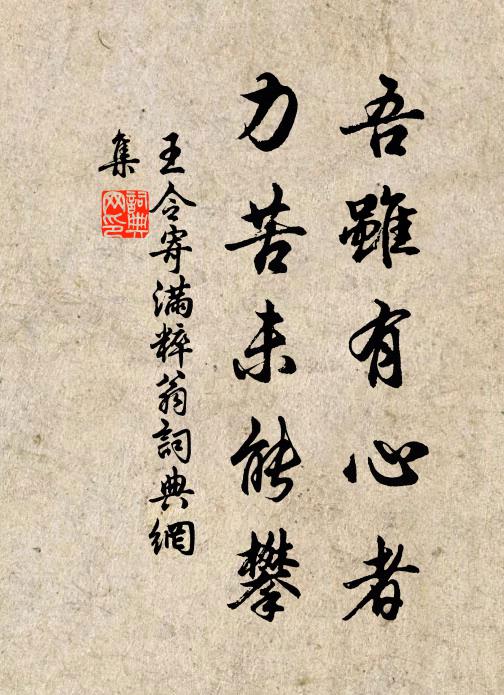 吾雖有心者
力苦未能攀
王令寄滿粹翁詞典網
集
詞典
网印